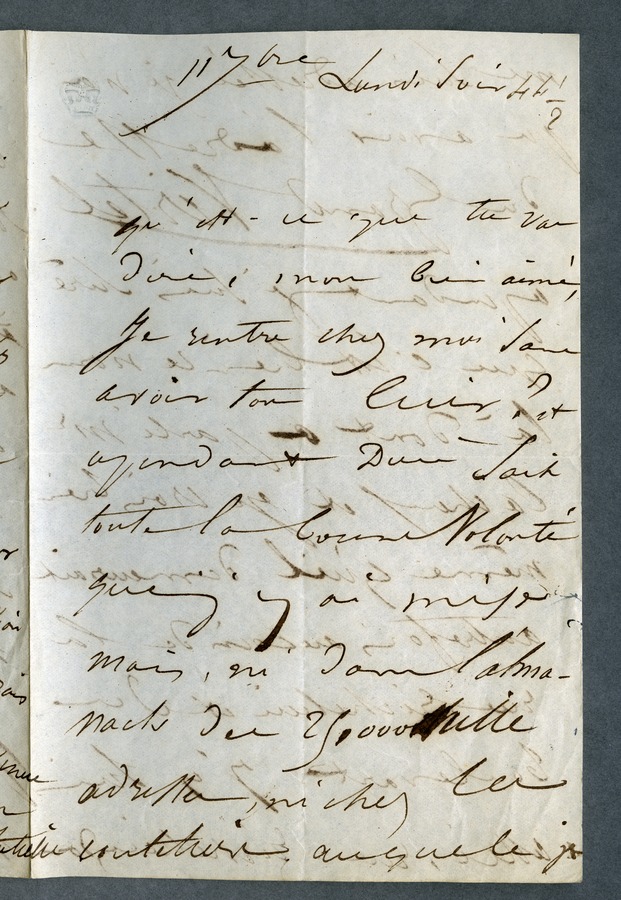 11 7bre Lundi soir 44
?
qu'est-ce que tu vas
dire, mon bien aimé,
Je rentre chez moi sans
avoir ton cuir? et
cependant Dieu sait
toute la bonne volonté
que j'y ai mise
mais, ni dans l'alma-
nach des 25,0000 mille
adresses, ni chez les
auquels je